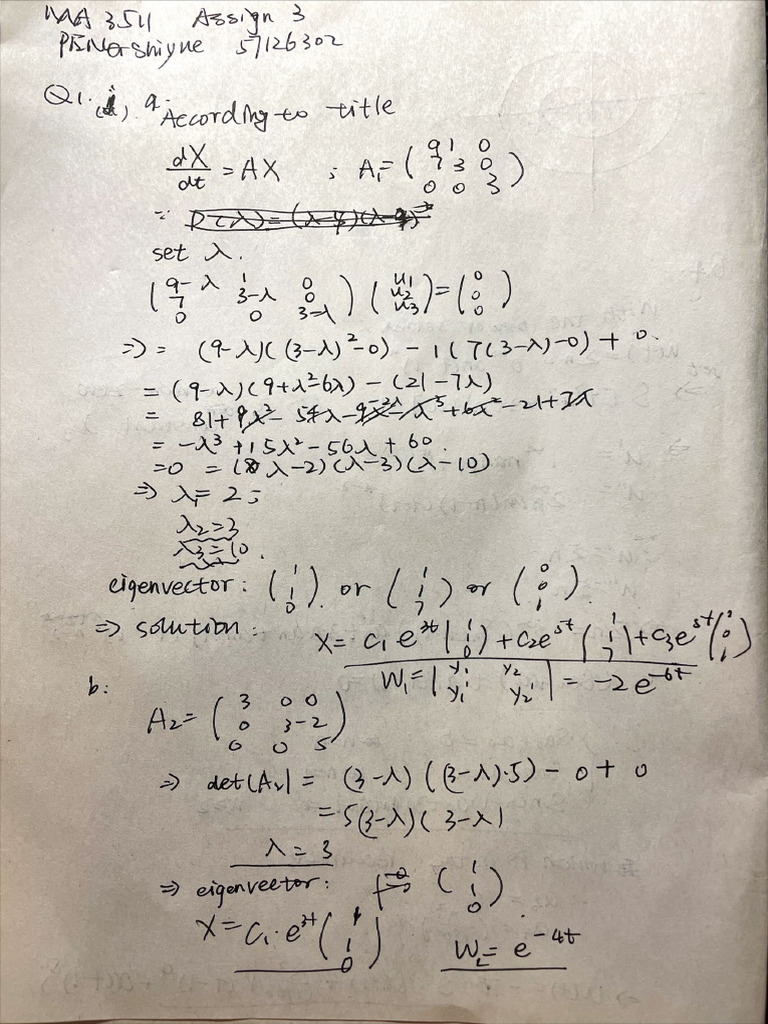 MA 3511 Assign 3
57126302
Q1. (i). a. According to title
dX/dt = AX ; A₁ = (9 1 0 / 7 3 0 / 0 0 3)
∵ P(λ) = (λ-4)(λ-9)
set λ.
(9-λ 1 0 / 7 3-λ 0 / 0 0 3-λ) (u₁ / u₂ / u₃) = (0 / 0 / 0)
=> = (9-λ)((3-λ)²-0) - 1(7(3-λ)-0) + 0.
= (9-λ)(9+λ²-6λ) - (21-7λ)
= 81+9λ² - 54λ - 9λ - λ³ + 6λ² - 21 + 7λ
= -λ³ + 15λ² - 56λ + 60.
=0 = (λ-2)(λ-3)(λ-10)
=> λ₁ = 2;
λ₂ = 3
λ₃ = 10.
eigenvector: (1 / 1 / 0) or (1 / 1 / 7) or (0 / 0 / 1).
=> solution: X = C₁e^{3t}(1 / 1 / 0) + C₂e^{5t}(1 / 1 / 7) + C₃e^{5t}(0 / 0 / 1)
W₁ = |y₁ y₂ / y₁' y₂'| = -2e^{-6t}
b:
A₂ = (3 0 0 / 0 3 -2 / 0 0 5)
=> det(A₂) = (3-λ)((3-λ)·5) - 0 + 0
= 5(3-λ)(3-λ)
λ = 3
=> eigenvector: (1 / 1 / 0)
X = C₁·e^{3t}(1 / 1 / 0) W₂ = e^{-4t}